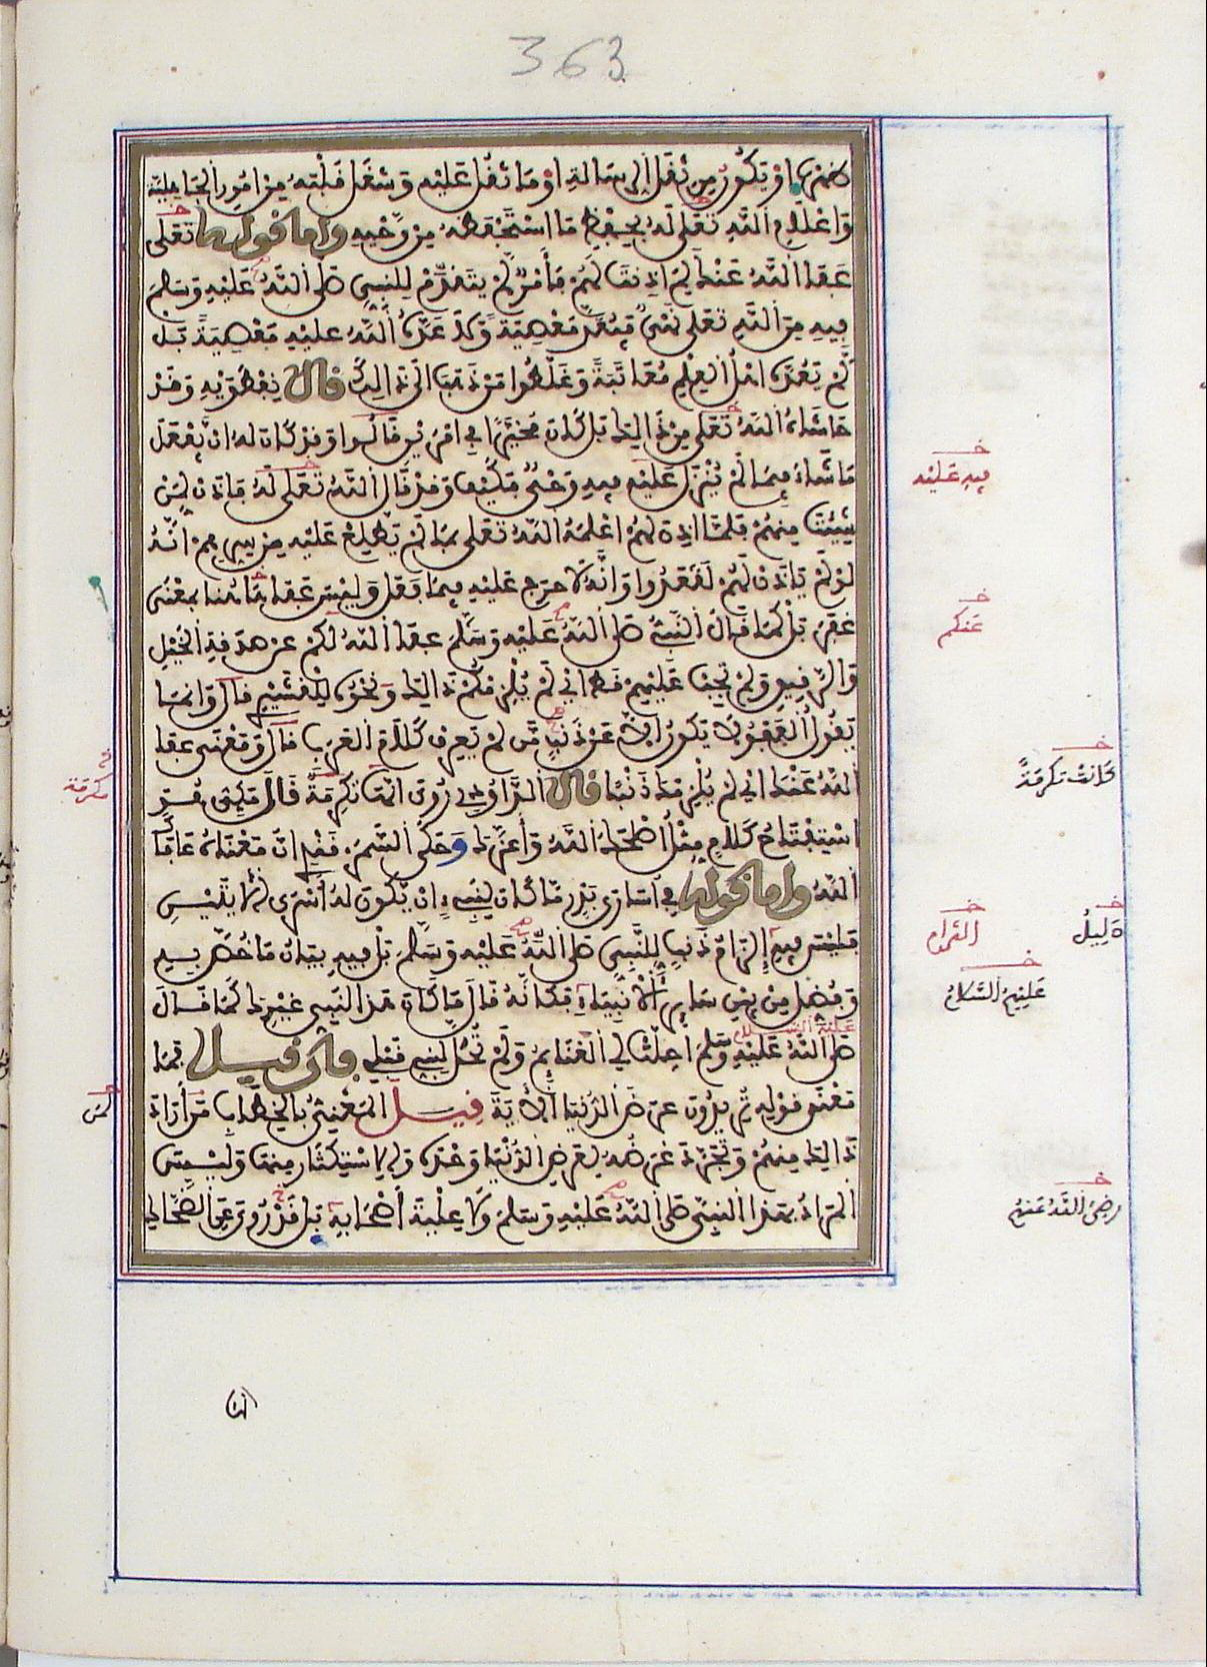 363
لاهتم بها او تكون من ثقل الرسالة او ما ثقل عليه وشغل قلبه من امور الجاهلية
واعلام الله تعلى له بحفظ ما استحفظه من وحيه واما قوله تعلى
عفا الله عنك لم اذنت لهم فأمر لم يتقدم للنبي صلى الله عليه وسلم
فيه من الله تعلى نهي فيعد معصية ولا عده الله عليه معصية بل
لم يعده اهل العلم معاتبة وغلطوا من ذهب الى ذالك قال نفطويه وقد
حاشاه الله تعلى من ذالك بل كان مخيرا في امرين قالوا وقد كان له ان يفعل
ما شاء فيما لم ينزل عليه فيه وحي فكيف وقد قال الله تعلى له فاذن لمن
شئت منهم فلما اذن لهم اعلمه الله تعلى بما لم يطلع عليه من سرهم انه
لو لم ياذن لهم لقعدوا وانه لا حرج عليه فيما فعل وليس عفا هاهنا بمعنى
غفر بل كما قال النبي صلى الله عليه وسلم عفا الله لكم عن صدقة الخيل
والرقيق ولم تجب عليهم قط اي لم يلزمكم ذالك ونحوه للقشيري قال وانما
يقول العفو لا يكون الا عن ذنب من لم يعرف كلام العرب قال ومعنى عفا
الله عنك اي لم يلزمك ذنبا قال الداودي روي انها تكرمة قال مكي هو
استفتاح كلام مثل اصلحك الله واعزك وحكى السمرقندي ان معناه عافاك
الله واما قوله في اسارى بدر ما كان لنبي ان يكون له أسرى الآيتين
فليس فيه إلزام ذنب للنبي صلى الله عليه وسلم بل فيه بيان ما خص به
وفضل من بين سائر الانبياء فكأنه قال ما كان هذا لنبي غيرك كما قال
عليه السلام
صلى الله عليه وسلم احلت لي الغنائم ولم تحل لنبي قبلي فان قيل فما
معنى قوله تريدون عرض الدنيا الآية قيل المعني بالخطاب من أراد
ذالك منهم وتجرد غرضه لغرض الدنيا وحده والاستكثار منها وليس
المراد بهذا النبي صلى الله عليه وسلم ولا علية أصحابه بل قد روي عن الضحاك
فيه عليه
عنكم
كانت تكرمة
مكرمة
دليل
عليهم السلام
لمن
رضي الله عنهم
انها